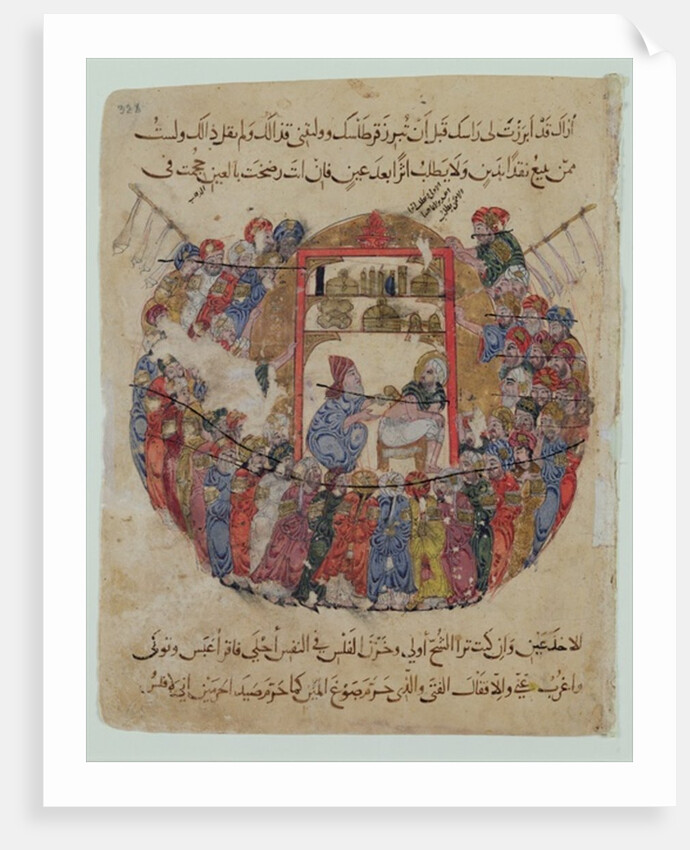 أراك قد أبرزت لي راسك قبل أن تبرز قرطاسك ووليتني قذالك ولم تقل لي ذا لك ولست
ممن يبيع نقدا بدين ولا يطلب اثرا بعد عين فان انت رضخت بالعين حجمت في
الاخدعين وان كنت ترا الشح أولى وخزن الفلس في النفس أحلى فاقرأ عبس وتولى
واغرب عني والا فقال الفتى والذي حرم صوغ المين كما حرم صيد الحرمين اني لافلس